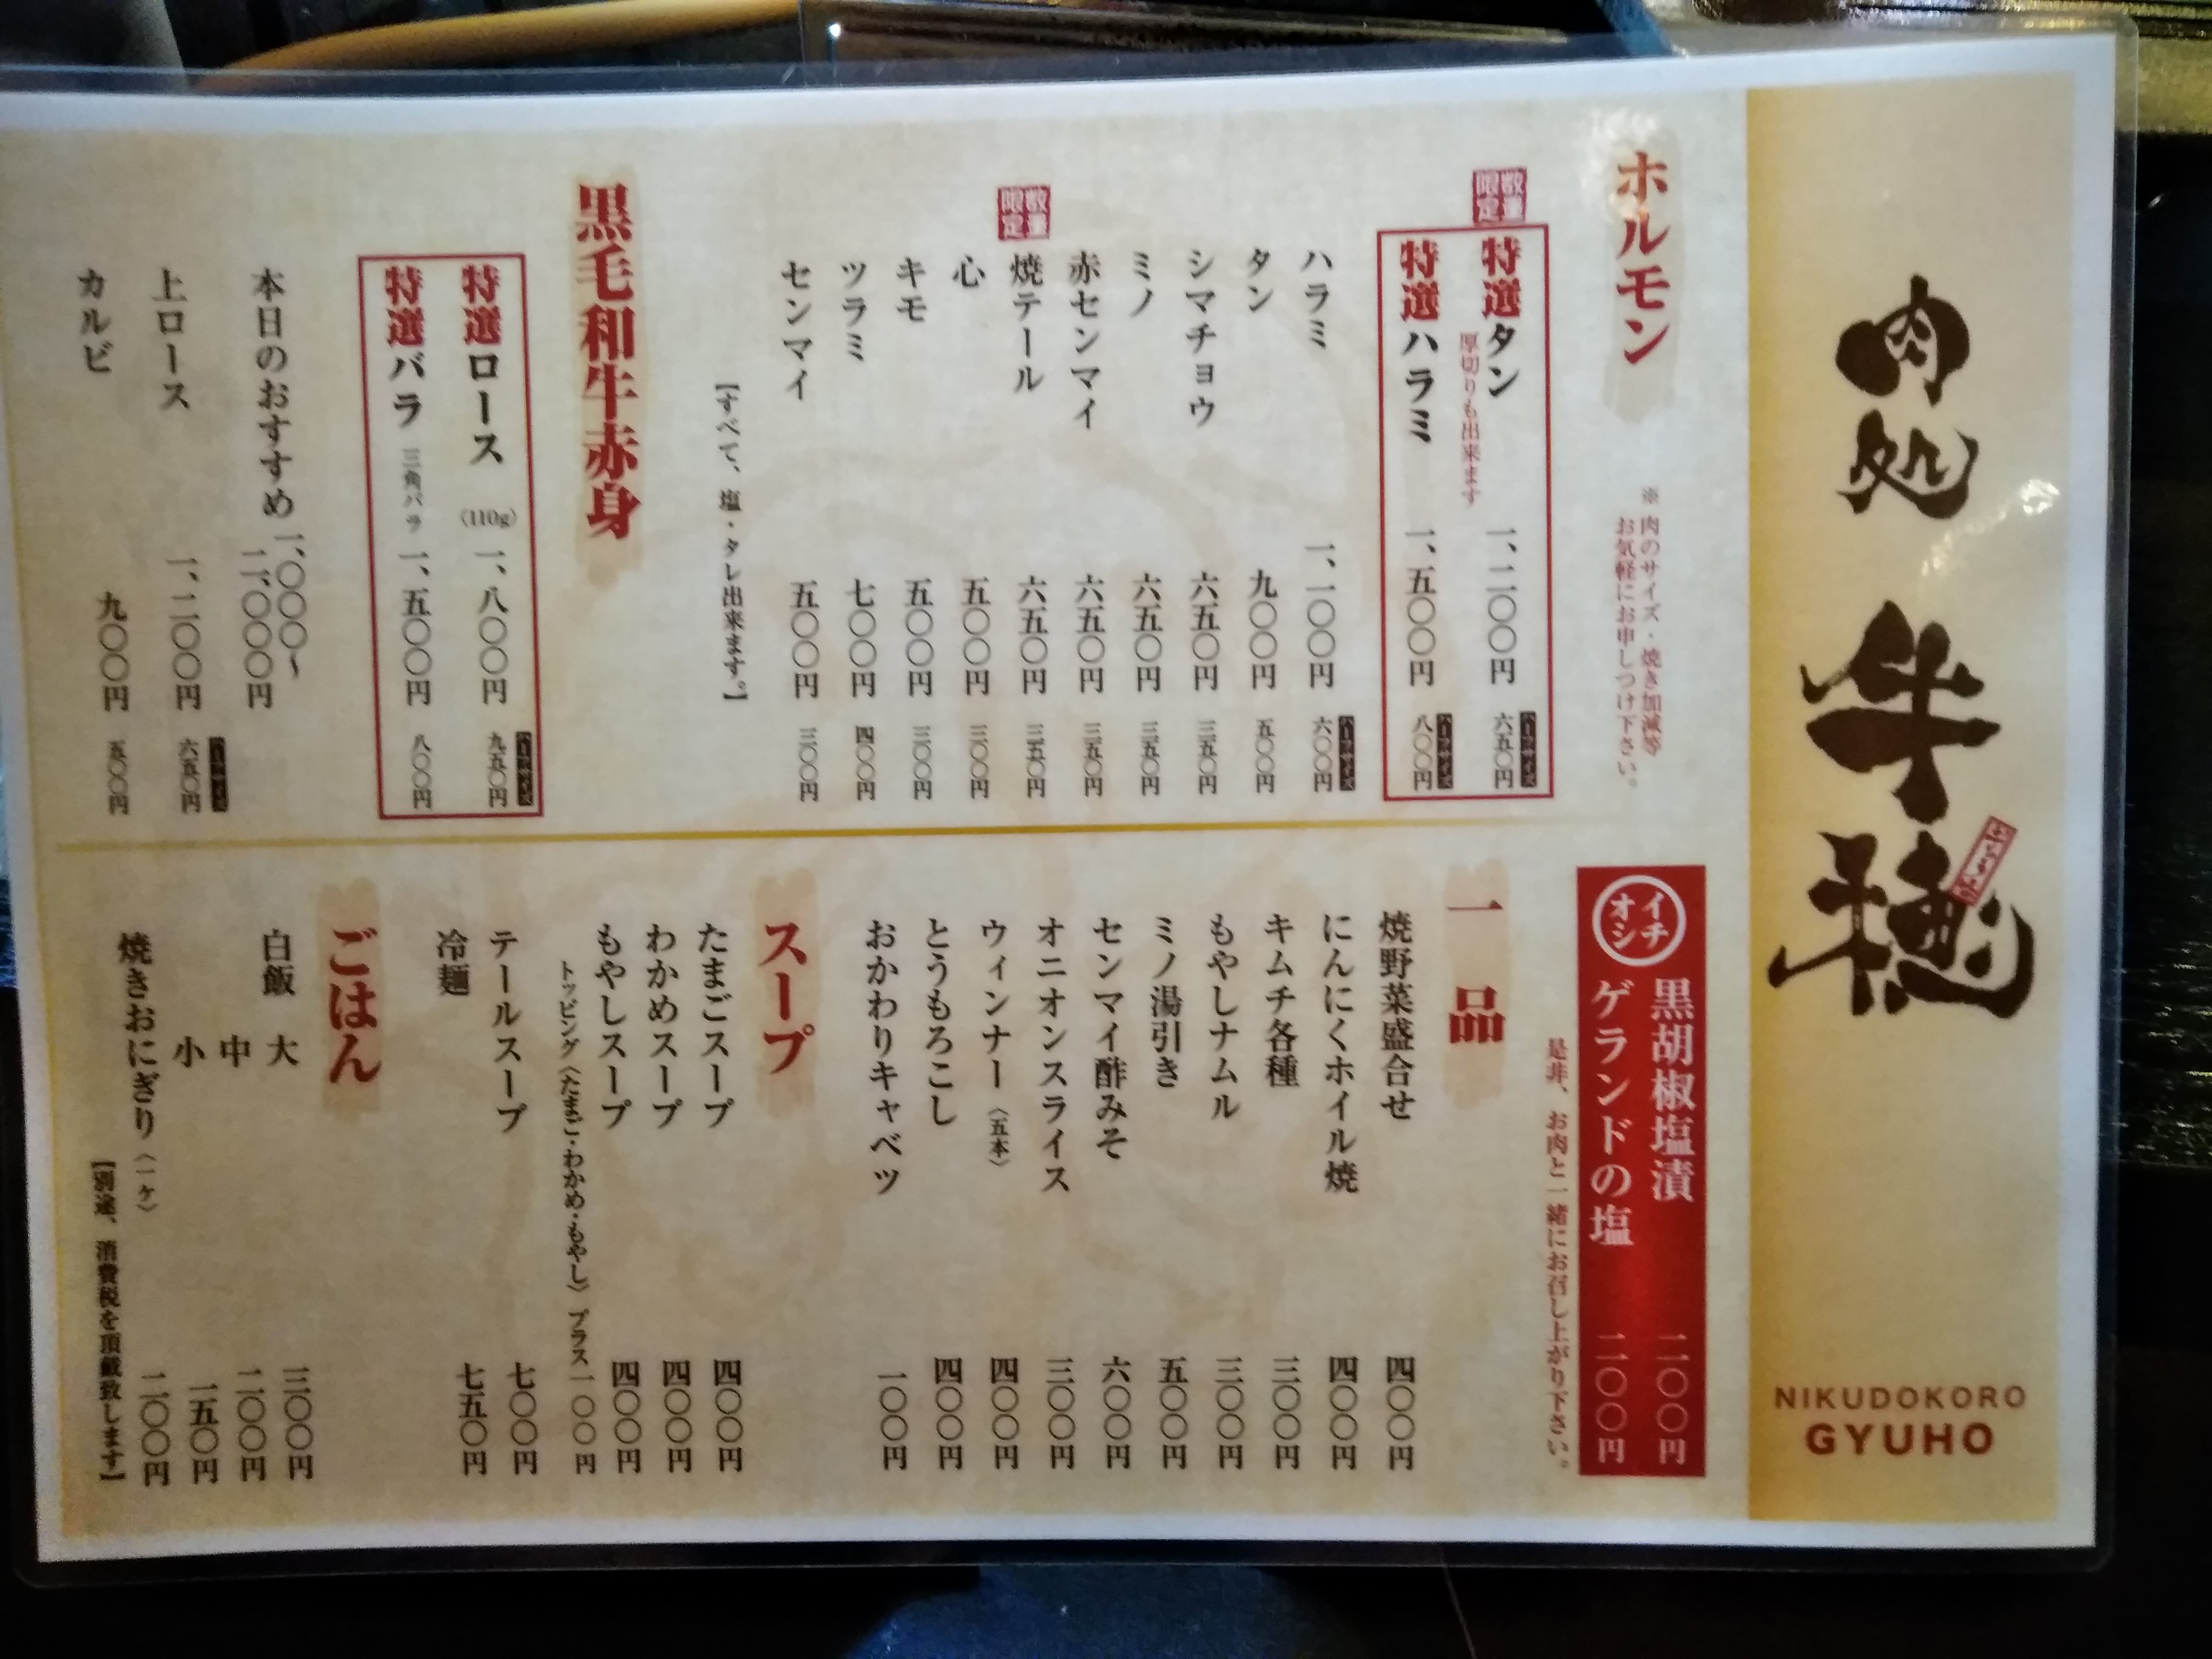 肉処 牛穂
NIKUDOKORO
GYUHO
ホルモン
※肉のサイズ・焼き加減等
お気軽にお申しつけ下さい。
数量限定
特選タン 一、二〇〇円 ハーフサイズ 六五〇円
厚切りも出来ます
特選ハラミ 一、五〇〇円 ハーフサイズ 八〇〇円
ハラミ 一、一〇〇円 ハーフサイズ 六〇〇円
タン 九〇〇円 五〇〇円
シマチョウ 六五〇円 三五〇円
ミノ 六五〇円 三五〇円
赤センマイ 六五〇円 三五〇円
数量限定
焼テール 六五〇円 三五〇円
心 五〇〇円 三〇〇円
キモ 五〇〇円 三〇〇円
ツラミ 七〇〇円 四〇〇円
センマイ 五〇〇円 三〇〇円
【すべて、塩・タレ出来ます。】
黒毛和牛赤身
特選ロース 〈110g〉 一、八〇〇円 ハーフサイズ 九五〇円
特選バラ 三角バラ 一、五〇〇円 八〇〇円
本日のおすすめ 一、〇〇〇〜
二、〇〇〇円
上ロース 一、二〇〇円 ハーフサイズ 六五〇円
カルビ 九〇〇円 五〇〇円
イチオシ
黒胡椒塩漬 二〇〇円
ゲランドの塩 二〇〇円
是非、お肉と一緒にお召し上がり下さい。
一品
焼野菜盛合せ 四〇〇円
にんにくホイル焼 四〇〇円
キムチ各種 三〇〇円
もやしナムル 三〇〇円
ミノ湯引き 五〇〇円
センマイ酢みそ 六〇〇円
オニオンスライス 三〇〇円
ウィンナー〈五本〉 四〇〇円
とうもろこし 四〇〇円
おかわりキャベツ 一〇〇円
スープ
たまごスープ 四〇〇円
わかめスープ 四〇〇円
もやしスープ 四〇〇円
トッピング〈たまご・わかめ・もやし〉 プラス一〇〇円
テールスープ 七〇〇円
冷麺 七五〇円
ごはん
白飯 大 三〇〇円
中 二〇〇円
小 一五〇円
焼きおにぎり〈一ケ〉 二〇〇円
【別途、消費税を頂戴致します】